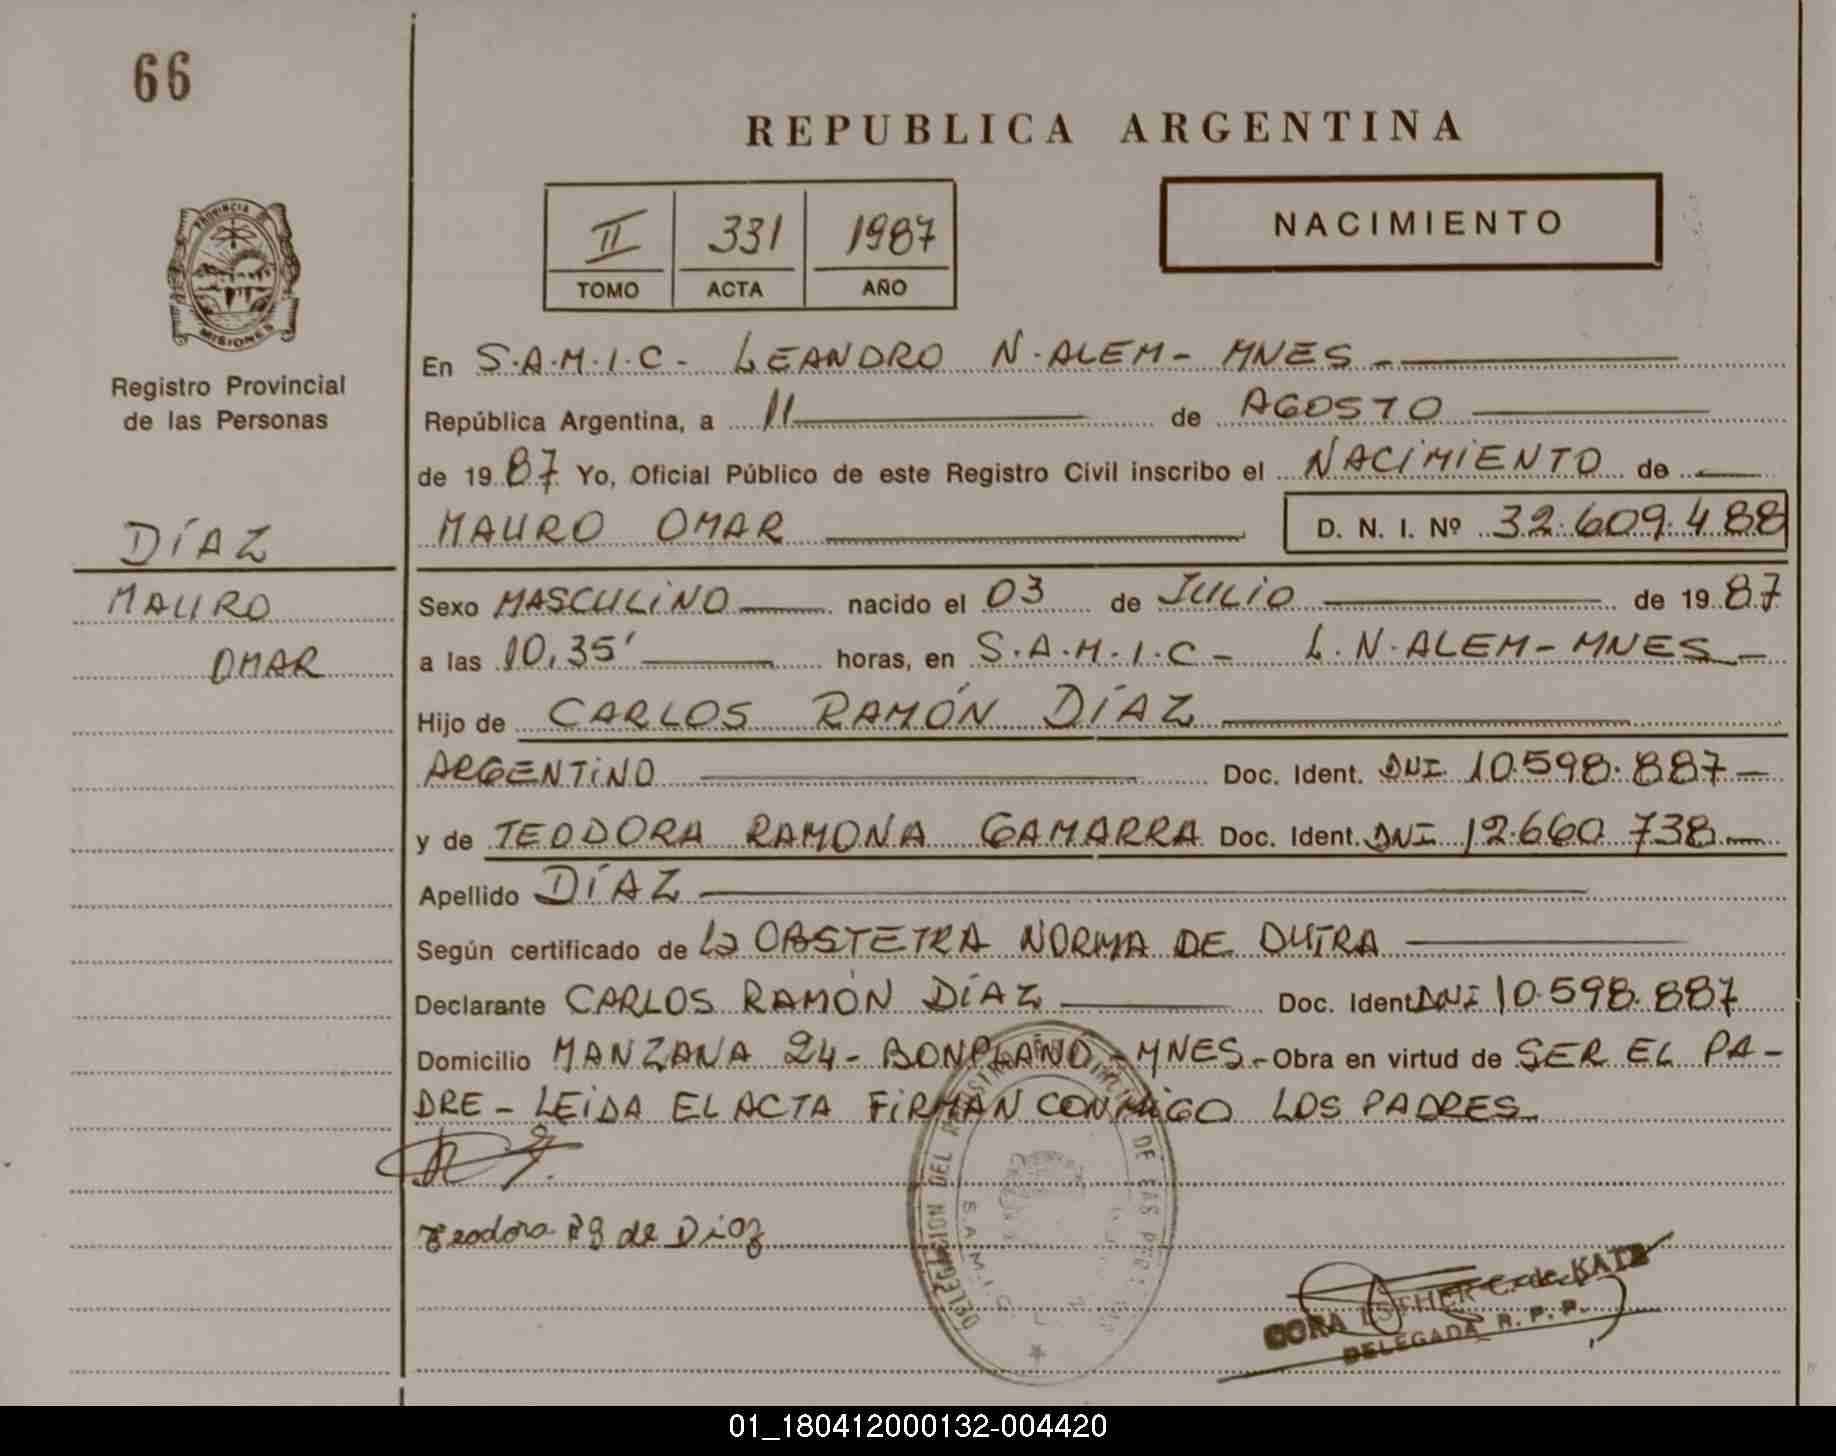 66
REPUBLICA ARGENTINA
II 331 1987
TOMO ACTA AÑO
NACIMIENTO
PROVINCIA
MISIONES
Registro Provincial
de las Personas
DÍAZ
MAURO
OMAR
En S.A.M.I.C- LEANDRO N.ALEM- MNES-
República Argentina, a 11 de AGOSTO
de 19 87 Yo, Oficial Público de este Registro Civil inscribo el NACIMIENTO de
MAURO OMAR D. N. I. Nº 32.609.488
Sexo MASCULINO nacido el 03 de JULIO de 19 87
a las 10,35' horas, en S.A.M.I.C- L.N.ALEM-MNES-
Hijo de CARLOS RAMÓN DÍAZ
ARGENTINO Doc. Ident. DNI 10.598.887-
y de TEODORA RAMONA GAMARRA Doc. Ident. DNI 12.660.738-
Apellido DÍAZ
Según certificado de La OBSTETRA NORMA DE DUTRA
Declarante CARLOS RAMÓN DÍAZ Doc. Ident DNI 10.598.887
Domicilio MANZANA 24- BONPLAND-MNES- Obra en virtud de SER EL PA-
DRE- LEIDA EL ACTA FIRMAN CONMIGO LOS PADRES-
Teodora RG de Diaz
DELEGACION DEL DE LAS
S.A.M.I.C.
CORA ESTHER C. de KATZ
DELEGADA R. P. P.
01_180412000132-004420